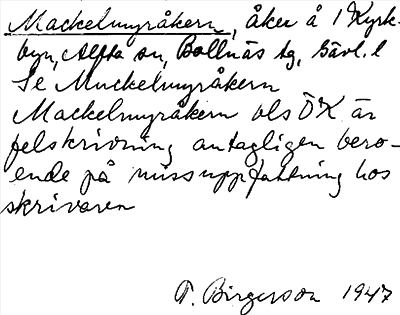 Mackelmyråkern, åker å 1 Kyrk-
byn, Alfta sn, Bollnäs tg, Gävl. l
Se Muckelmyråkern
Mackelmyråkern ols ÖK är
felskrivning antagligen bero-
ende på missuppfattning hos
skrivaren
T. Birgerson 1947